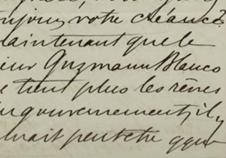 toujours votre créance?
maintenant que le
sieur Guzmann Blanco
ne tient plus les rênes
du gouvernement, il y
aurait peut être que